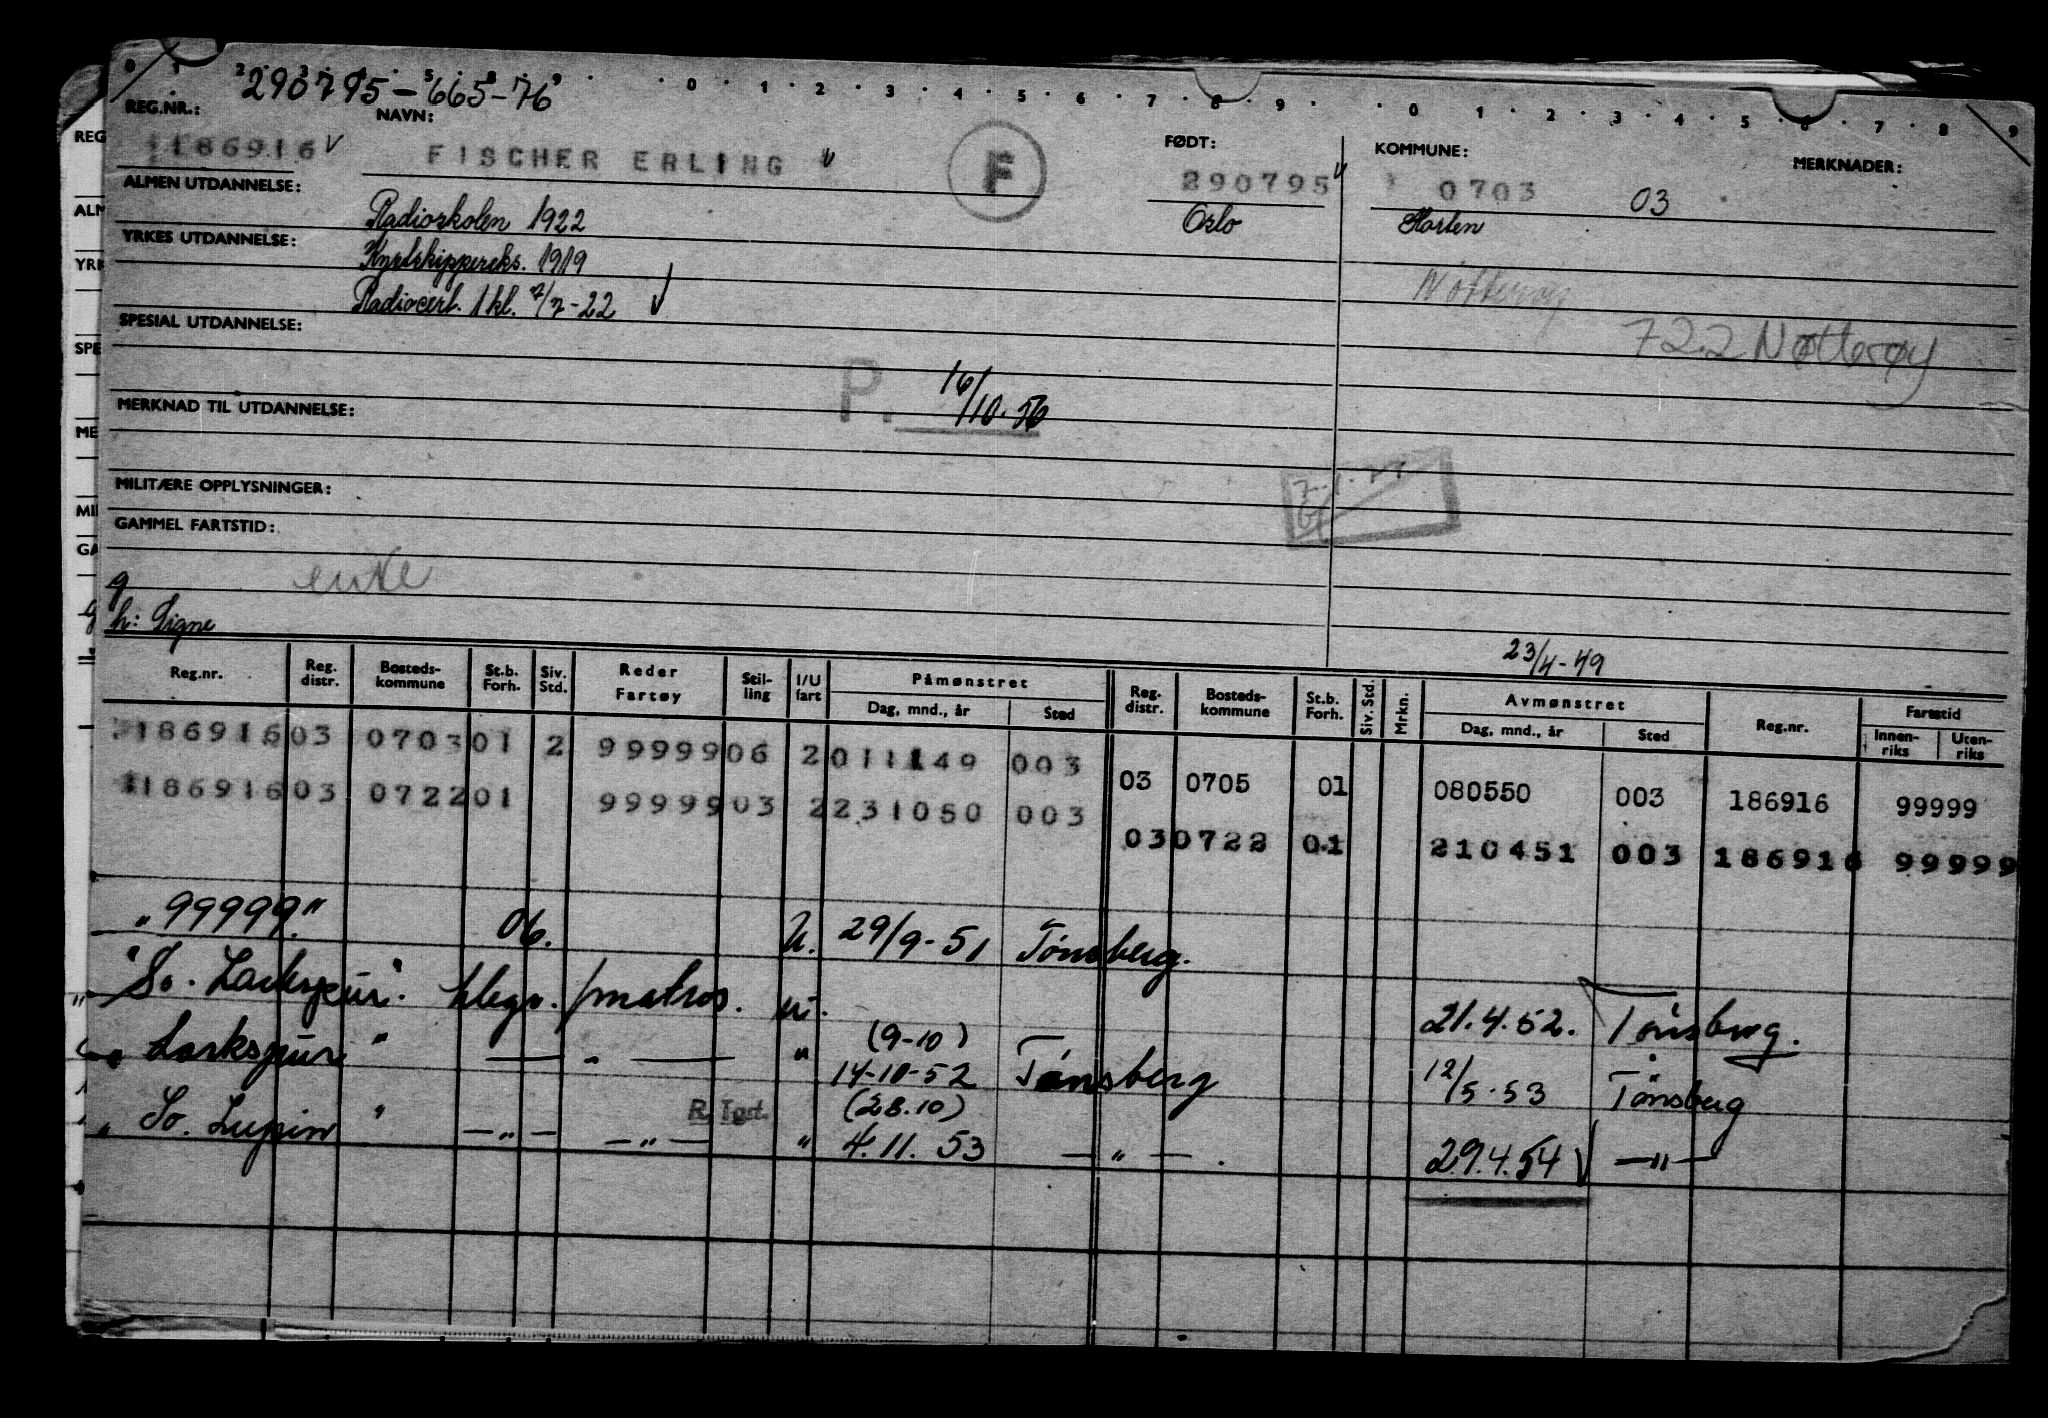 0 1 2 3 4 5 8 9 0 1 2 3 4 5 6 7 8 9 0 1 2 3 4 5 6 7 8 9
290795-665-76
REG.NR.: NAVN: FØDT: KOMMUNE: MERKNADER:
186916 FISCHER ERLING F 290795 0703 03
ALMEN UTDANNELSE: Radioskolen 1922 Oslo Horten
YRKES UTDANNELSE: Kystskippereks. 1919 Nøtterøy
Radiocert. 1 kl. 7/7-22
SPESIAL UTDANNELSE: 722 Nøtterøy
P. 16/10.56
MERKNAD TIL UTDANNELSE:
MILITÆRE OPPLYSNINGER:
GAMMEL FARTSTID:
enke
g
h: Signe
23/4-49
Reg.nr. Reg. distr. Bosteds-kommune St.b. Forh. Siv. Std. Reder Fartøy Stil-ling I/U fart Påmønstret Dag, mnd., år Sted Reg. distr. Bosteds-kommune St.b. Forh. Siv. Std. Mrkn. Avmønstret Dag, mnd., år Sted Reg.nr. Fartstid Innen-riks Uten-riks
186916 03 0703 01 2 99999 06 2 011149 003 03 0705 01 080550 003 186916 99999
186916 03 0722 01 99999 03 2 231050 003 03 0722 01 210451 003 186916 99999
"99999." 06. U. 29/9-51 Tønsberg.
"So. Larkspur". tlegr. /matros. U. 21.4.52. Tønsberg.
" Larkspur " — " — " (9-10) 14-10-52 Tønsberg 12/5-53 Tønsberg
" So. Lupin " — " — — " — R. Tgt. " (28.10) 4.11.53 — " — . 29.4.54 — " —